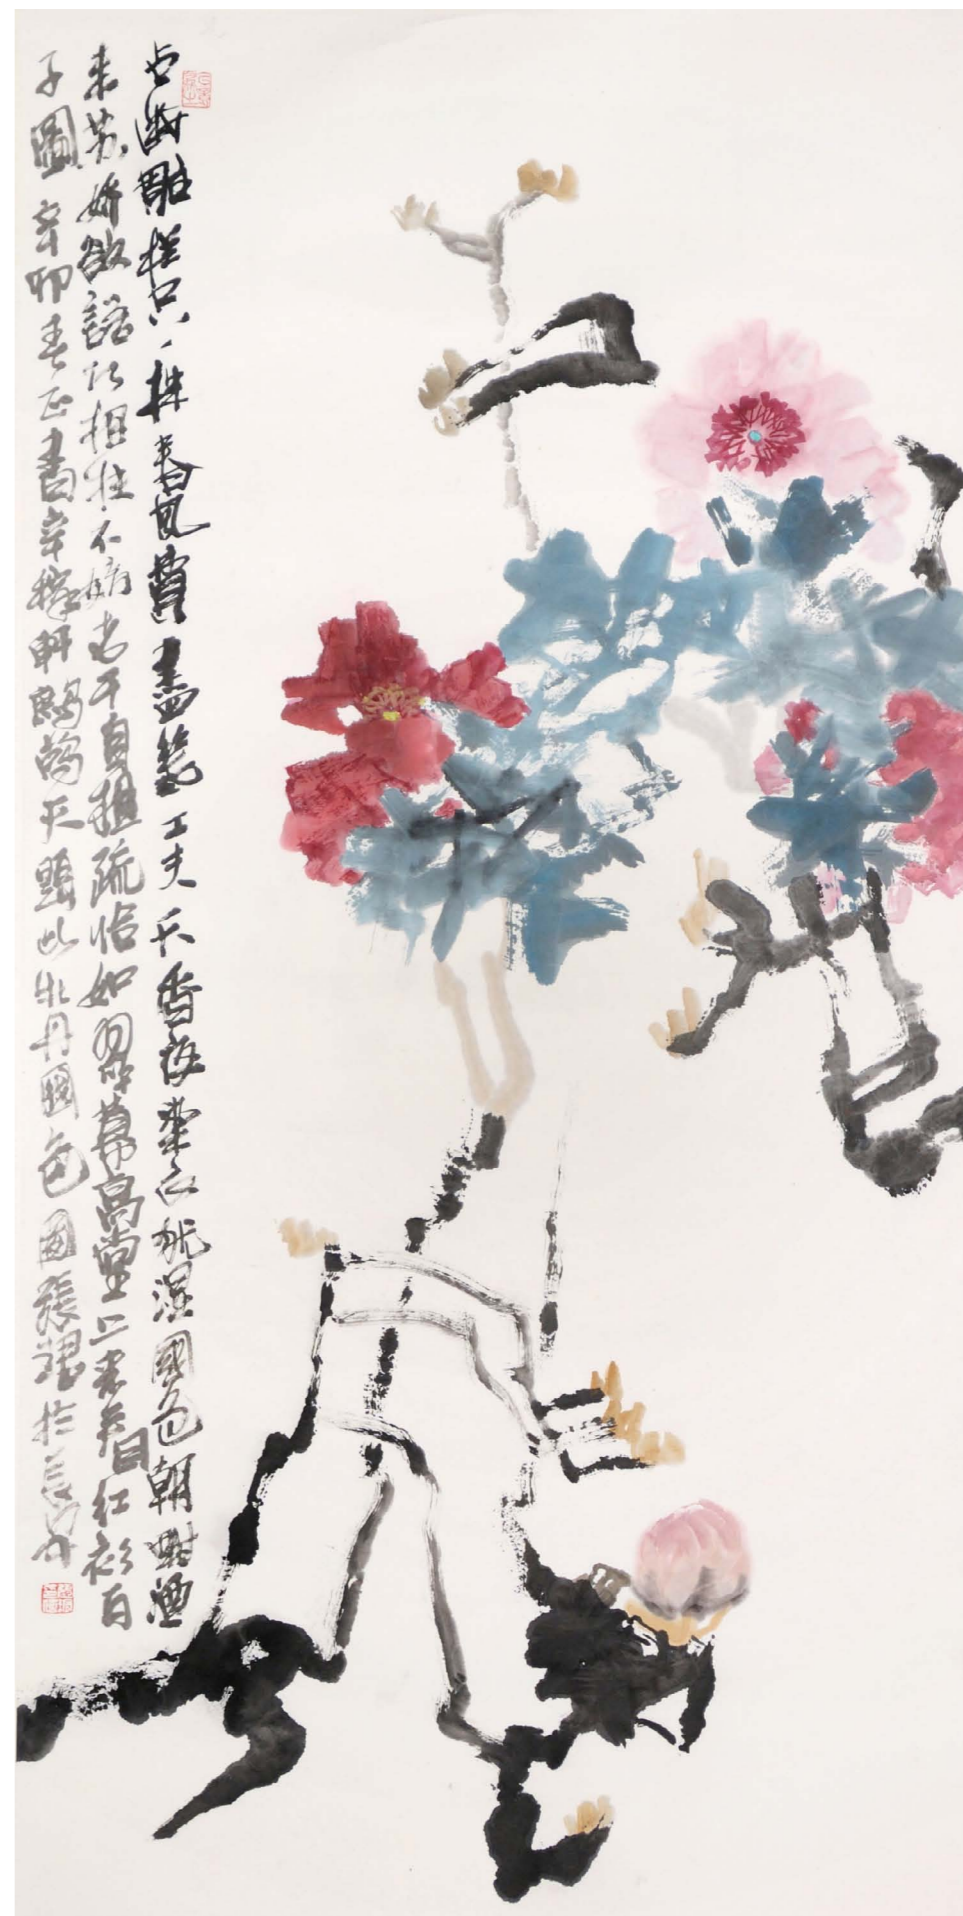 占斷雕栏只一株春風費盡幾工夫天香夜染衣犹濕國色朝酣酒
未苏嬌欲語巧相扶不妨老干自扶疏恰如翠幕高堂上來看紅衫百
子圖辛卯春正書辛稼軒鷓鴣天題此牡丹國色圖張於長安